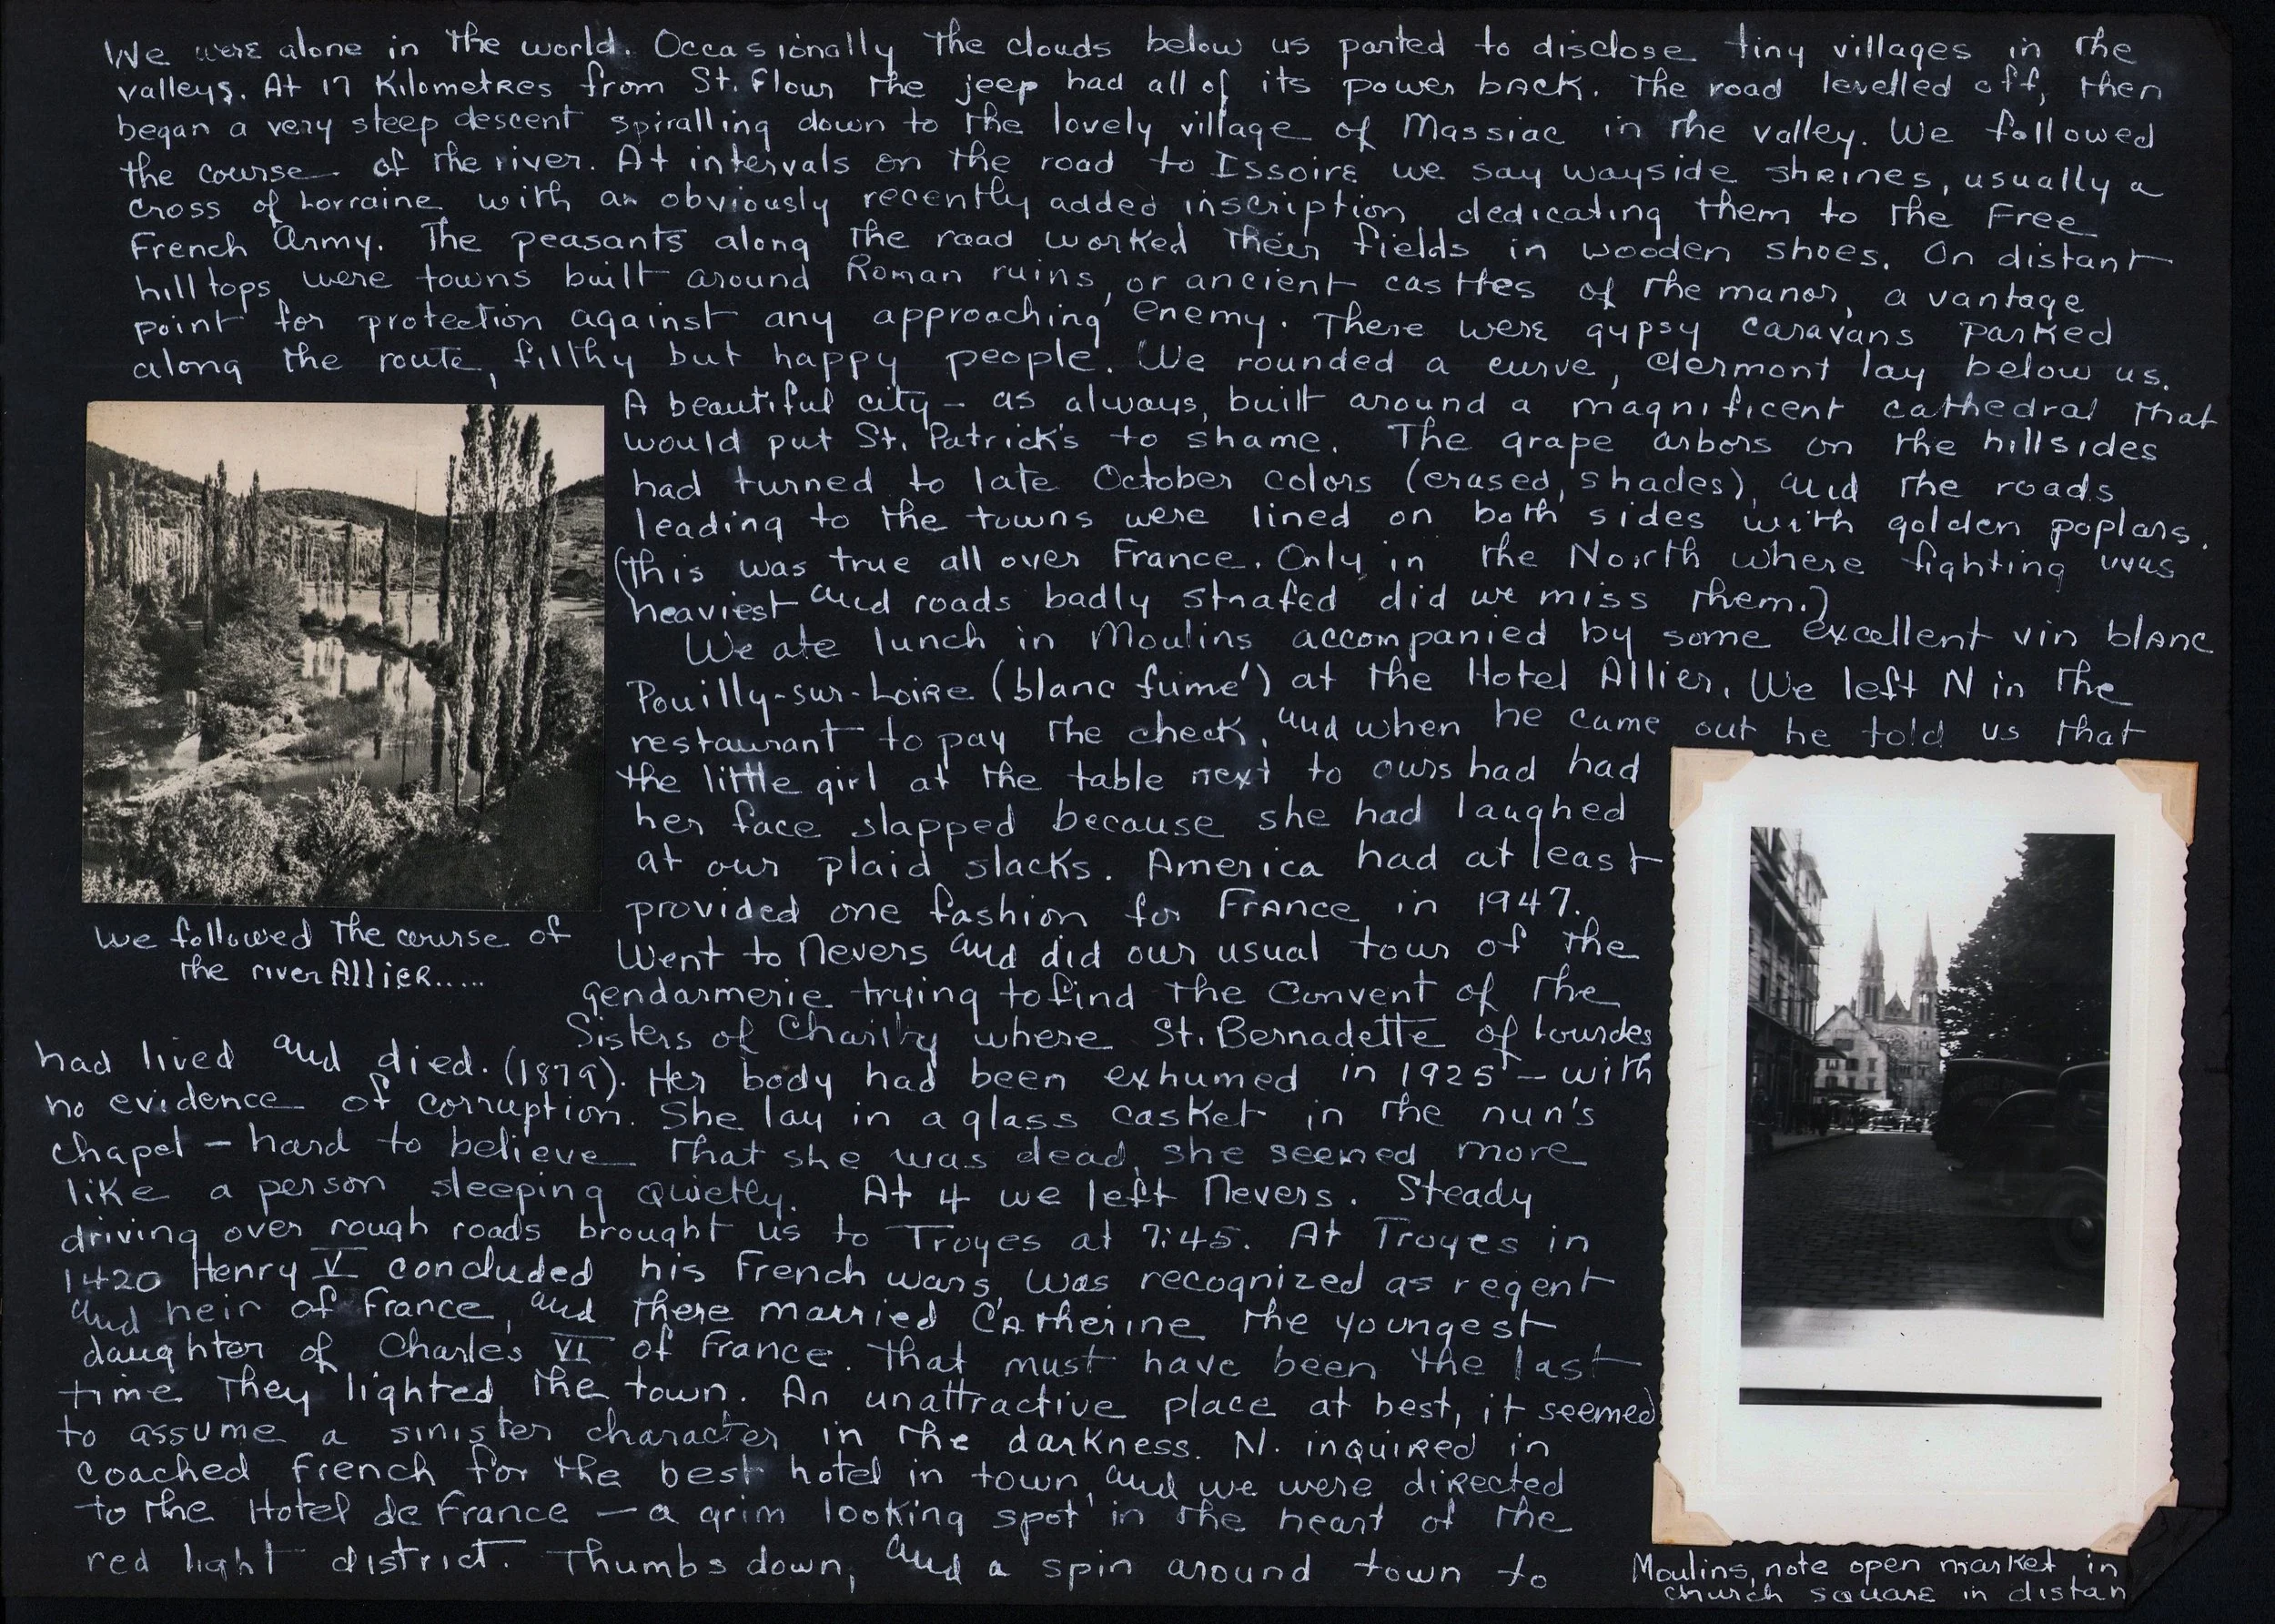 We were alone in the world. Occasionally the clouds below us parted to disclose tiny villages in the
valleys. At 17 Kilometres from St. Flour the jeep had all of its power back. The road levelled off, then
began a very steep descent spiralling down to the lovely village of Massiac in the valley. We followed
the course of the river. At intervals on the road to Issoire we say wayside shrines, usually a
cross of Lorraine with an obviously recently added inscription dedicating them to the Free
French Army. The peasants along the road worked their fields in wooden shoes. On distant
hilltops were towns built around Roman ruins, or ancient castles of the manor, a vantage
point for protection against any approaching enemy. There were gypsy caravans parked
along the route, filthy but happy people. We rounded a curve, Clermont lay below us.
A beautiful city - as always, built around a magnificent cathedral that
would put St. Patrick's to shame. The grape arbors on the hillsides
had turned to late October colors (erased, shades), and the roads
leading to the towns were lined on both sides with golden poplars.
(this was true all over France. Only in the North where fighting was
heaviest and roads badly strafed did we miss them.)
We ate lunch in Moulins accompanied by some excellent vin blanc
Pouilly-sur-Loire (blanc fume') at the Hotel Allier. We left N in the
restaurant to pay the check, and when he came out he told us that
the little girl at the table next to ours had had
her face slapped because she had laughed
at our plaid slacks. America had at least
provided one fashion for France in 1947.
Went to Nevers and did our usual tour of the
Gendarmerie trying to find the Convent of the
Sisters of Charity where St. Bernadette of Lourdes
had lived and died. (1879). Her body had been exhumed in 1925 - with
no evidence of corruption. She lay in a glass casket in the nun's
chapel - hard to believe that she was dead, she seemed more
like a person sleeping quietly. At 4 we left Nevers. Steady
driving over rough roads brought us to Troyes at 7:45. At Troyes in
1420 Henry V concluded his French wars, was recognized as regent
and heir of France, and there married Catherine the youngest
daughter of Charles VI of France. That must have been the last
time they lighted the town. An unattractive place at best, it seemed
to assume a sinister character in the darkness. N. inquired in
coached French for the best hotel in town, and we were directed
to the Hotel de France - a grim looking spot in the heart of the
red light district. Thumbs down, and a spin around town to
We followed the course of
the river Allier.....
Moulins, note open market in
church square in distan